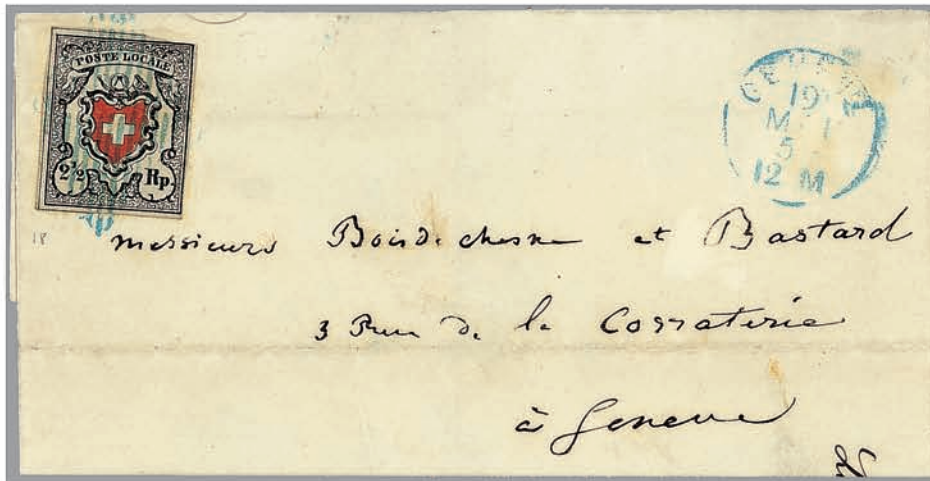 POSTE LOCALE
2½ Rp.
GENEVE
19
12 M
18
Messieurs Boisdechesne et Bastard
3 Rue de la Corraterie
à Geneve